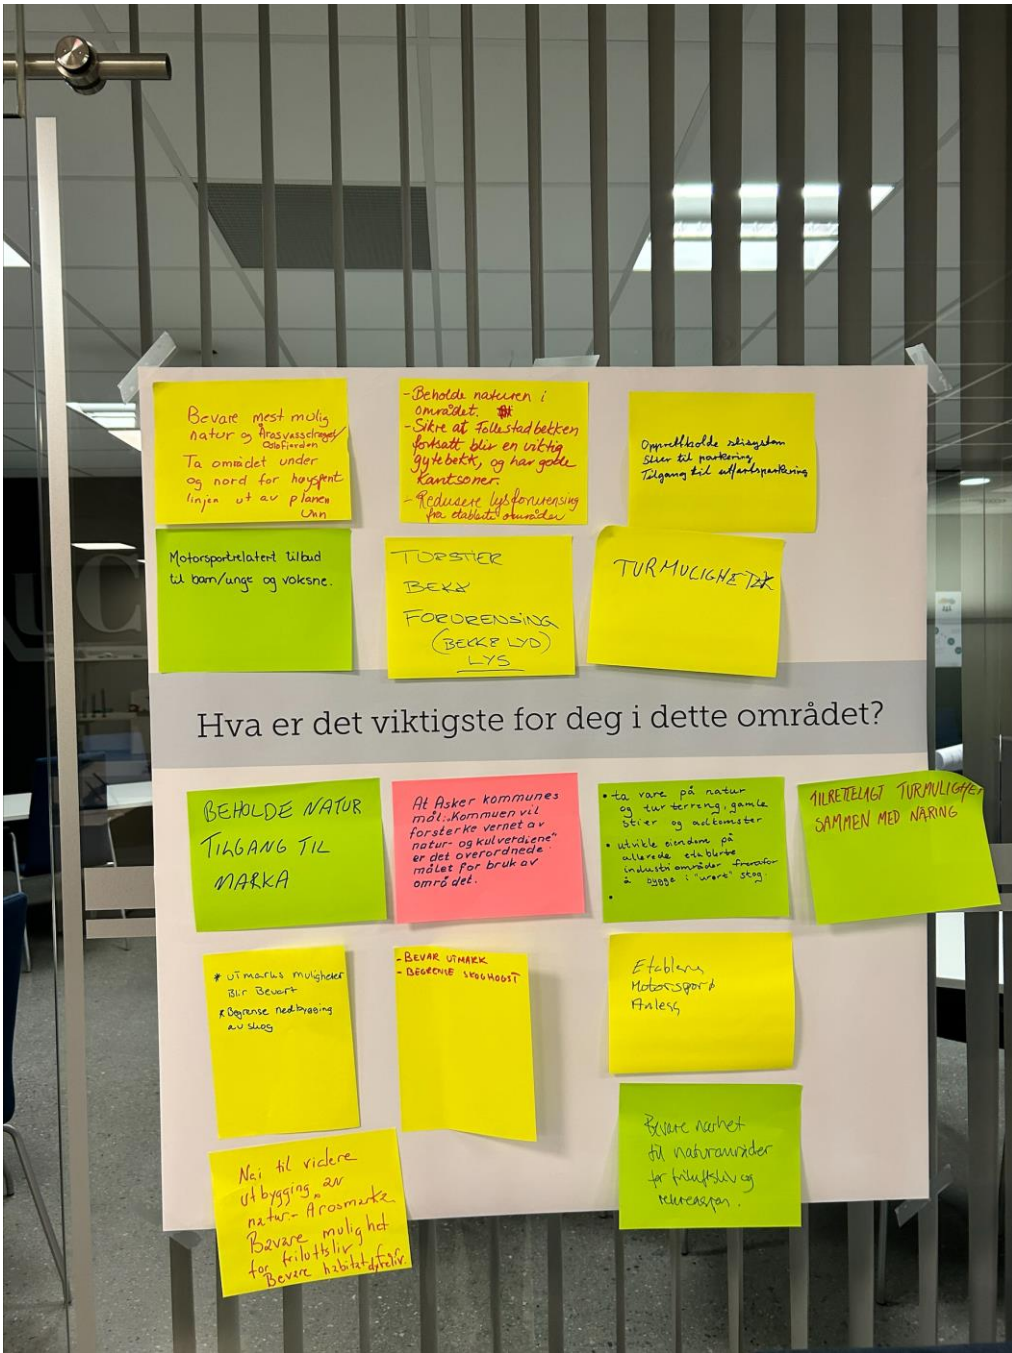 Bevare mest mulig
natur og Årosvassdraget/
Oslofjorden
Ta området under
og nord for høyspent
linjen ut av planen
- Beholde naturen i
området.
- Sikre at Follestadbekken
fortsatt blir en viktig
gytebekk, og har gode
kantsoner.
- Redusere lysforurensing
fra etablerte områder
Opprettholde stisystem
Stier til parkering
Tilgang til utfartsparkering
Motorsportrelatert tilbud
til barn/unge og voksne.
TURSTIER
BEKK
FORURENSING
(BEKK & LYD)
LYS
TURMULIGHETER
Hva er det viktigste for deg i dette området?
BEHOLDE NATUR
TILGANG TIL
MARKA
At Asker kommunes
mål: "Kommuen vil
forsterke vernet av
natur- og kulverdiene"
er det overordnede
målet for bruk av
området.
• ta vare på natur
og turterreng, gamle
stier og adkomster
• utvikle eiendom på
allerede etablerte
industriområder fremfor
å bygge i "urørt" skog.
•
TILRETTELAGT TURMULIGHET
SAMMEN MED NÄRING
* UTmarks muligheter
Blir Bevart
* Begrense nedbygging
av skog
- BEVAR UTMARK
- BEGRENSE SKOGHOGST
Etablere
Motorsport
Anlegg
Bevare nærhet
til naturområder
for friluftsliv og
rekreasjon.
Nei til videre
utbygging av
natur - Årosmarka
Bavare mulighet
for friluftsliv
Bevare habitat for
dyreliv.